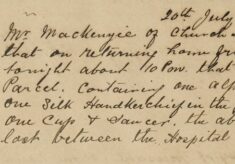 20th July
Mr. MacKenzie of Church
that on returning home fr
tonight about 10 P.m. that
Parcel. Containing one alp
one Silk Handkerchief in the
one Cup & Saucer. the ab
lost between the Hospital